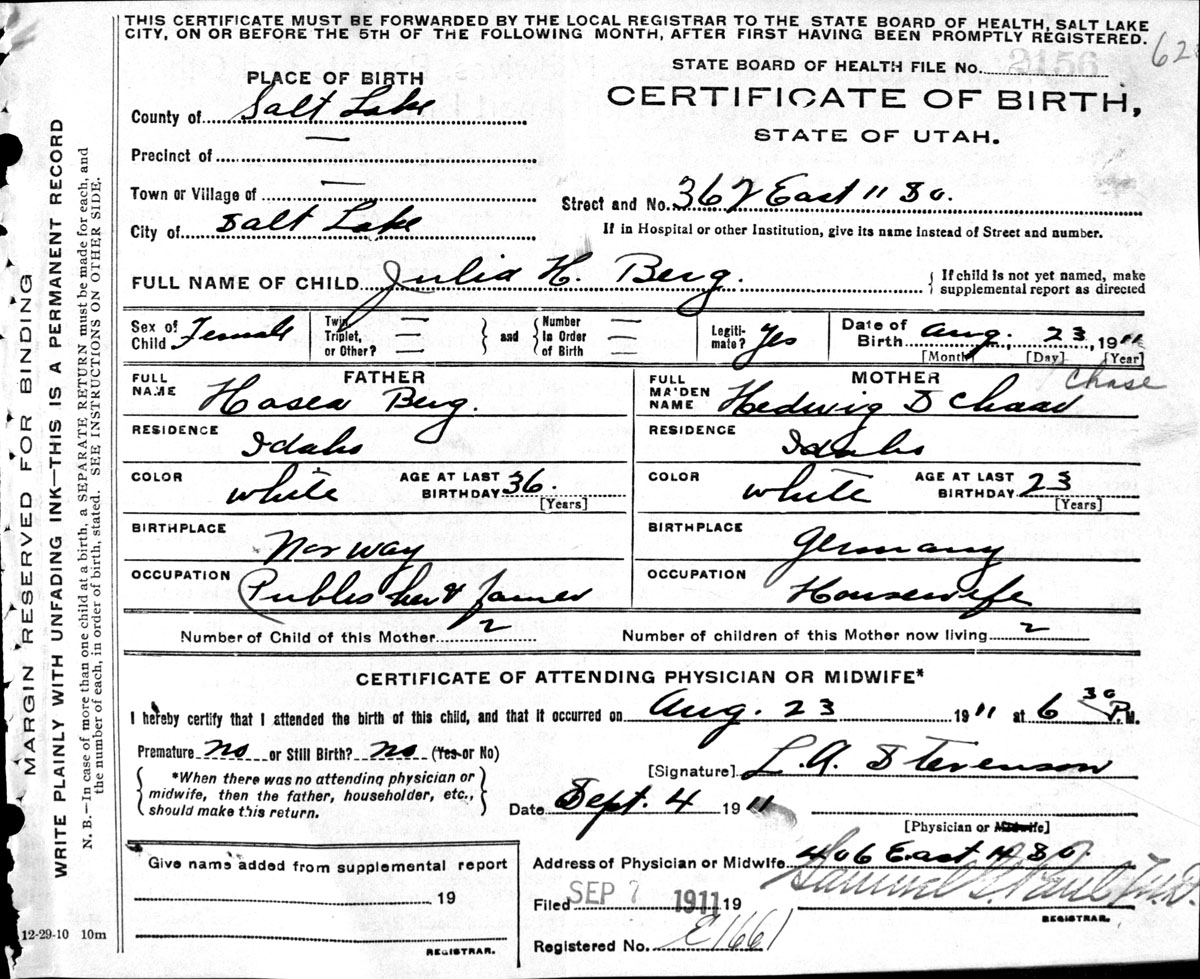 THIS CERTIFICATE MUST BE FORWARDED BY THE LOCAL REGISTRAR TO THE STATE BOARD OF HEALTH, SALT LAKE
CITY, ON OR BEFORE THE 5TH OF THE FOLLOWING MONTH, AFTER FIRST HAVING BEEN PROMPTLY REGISTERED.
62
STATE BOARD OF HEALTH FILE No. 2156
CERTIFICATE OF BIRTH,
STATE OF UTAH.
PLACE OF BIRTH
County of Salt Lake
Precinct of —
Town or Village of —
City of Salt Lake
Street and No. 362 East 11 So.
If in Hospital or other Institution, give its name instead of Street and number.
FULL NAME OF CHILD Julia H. Berg.
{ If child is not yet named, make
supplemental report as directed
Sex of Child Female
Twin, Triplet, or Other? — and Number in Order of Birth —
Legitimate? Yes
Date of Birth Aug. 23, 1911
[Month] [Day] [Year]
FATHER
FULL NAME Hosea Berg.
RESIDENCE Idaho
COLOR White
AGE AT LAST BIRTHDAY 36. [Years]
BIRTHPLACE Norway
OCCUPATION Publisher & Farmer
MOTHER
Chase
FULL MAIDEN NAME Hedwig Schaad
RESIDENCE Idaho
COLOR White
AGE AT LAST BIRTHDAY 23 [Years]
BIRTHPLACE Germany
OCCUPATION Housewife
Number of Child of this Mother 2
Number of children of this Mother now living 2
CERTIFICATE OF ATTENDING PHYSICIAN OR MIDWIFE*
I hereby certify that I attended the birth of this child, and that it occurred on Aug. 23 1911 at 6 30 P.M.
Premature no or Still Birth? no (Yes or No)
{ *When there was no attending physician or
midwife, then the father, householder, etc.,
should make this return. }
[Signature] L. A. Stevenson
Date Sept. 4 1911
[Physician or Midwife]
Give name added from supplemental report
19
REGISTRAR.
Address of Physician or Midwife 406 East
Filed SEP 7 1911 19
REGISTRAR.
Registered No. E1661
12-29-10 10m
MARGIN RESERVED FOR BINDING
WRITE PLAINLY WITH UNFADING INK—THIS IS A PERMANENT RECORD
N. B.—In case of more than one child at a birth, a SEPARATE RETURN must be made for each, and
the number of each, in order of birth, stated. SEE INSTRUCTIONS ON OTHER SIDE.